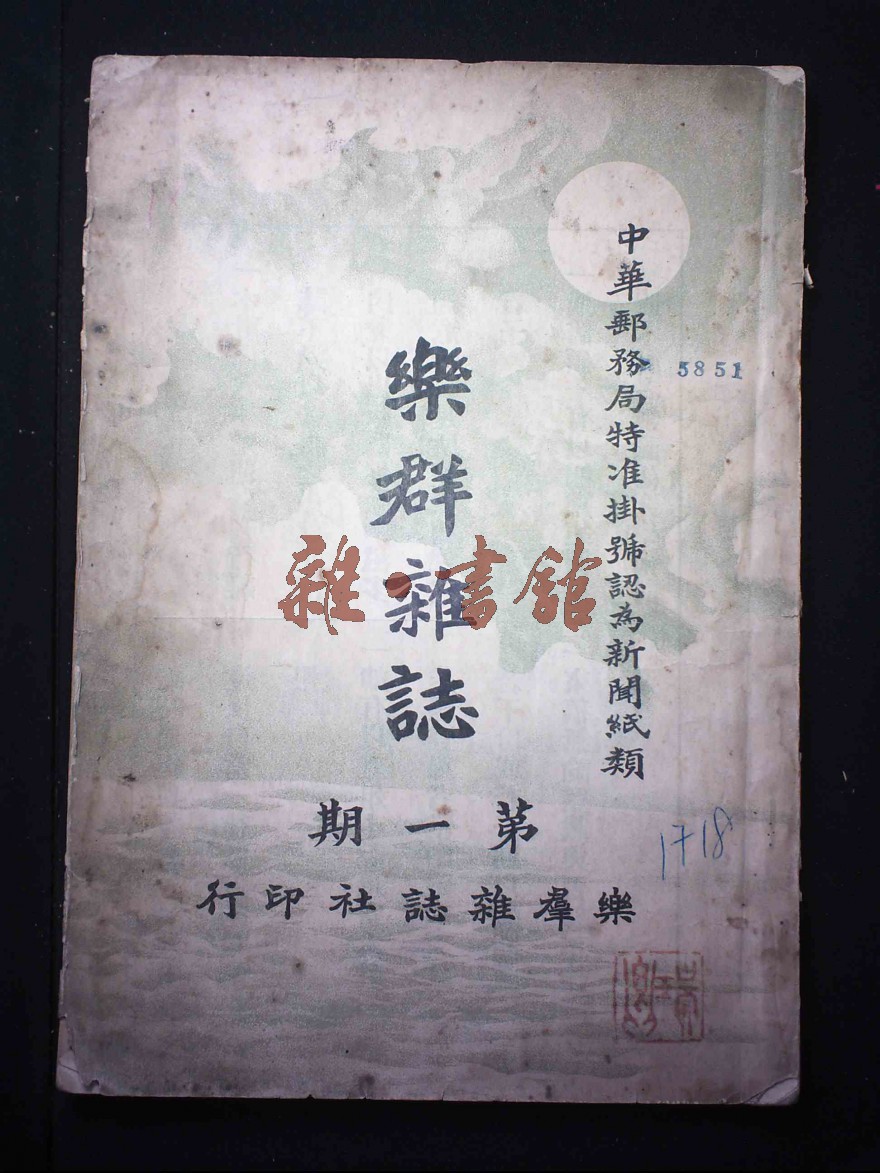 中華郵務局特准掛號認為新聞紙類
5851
樂群雜誌
雜·書舘
第一期
樂羣雜誌社印行
1718